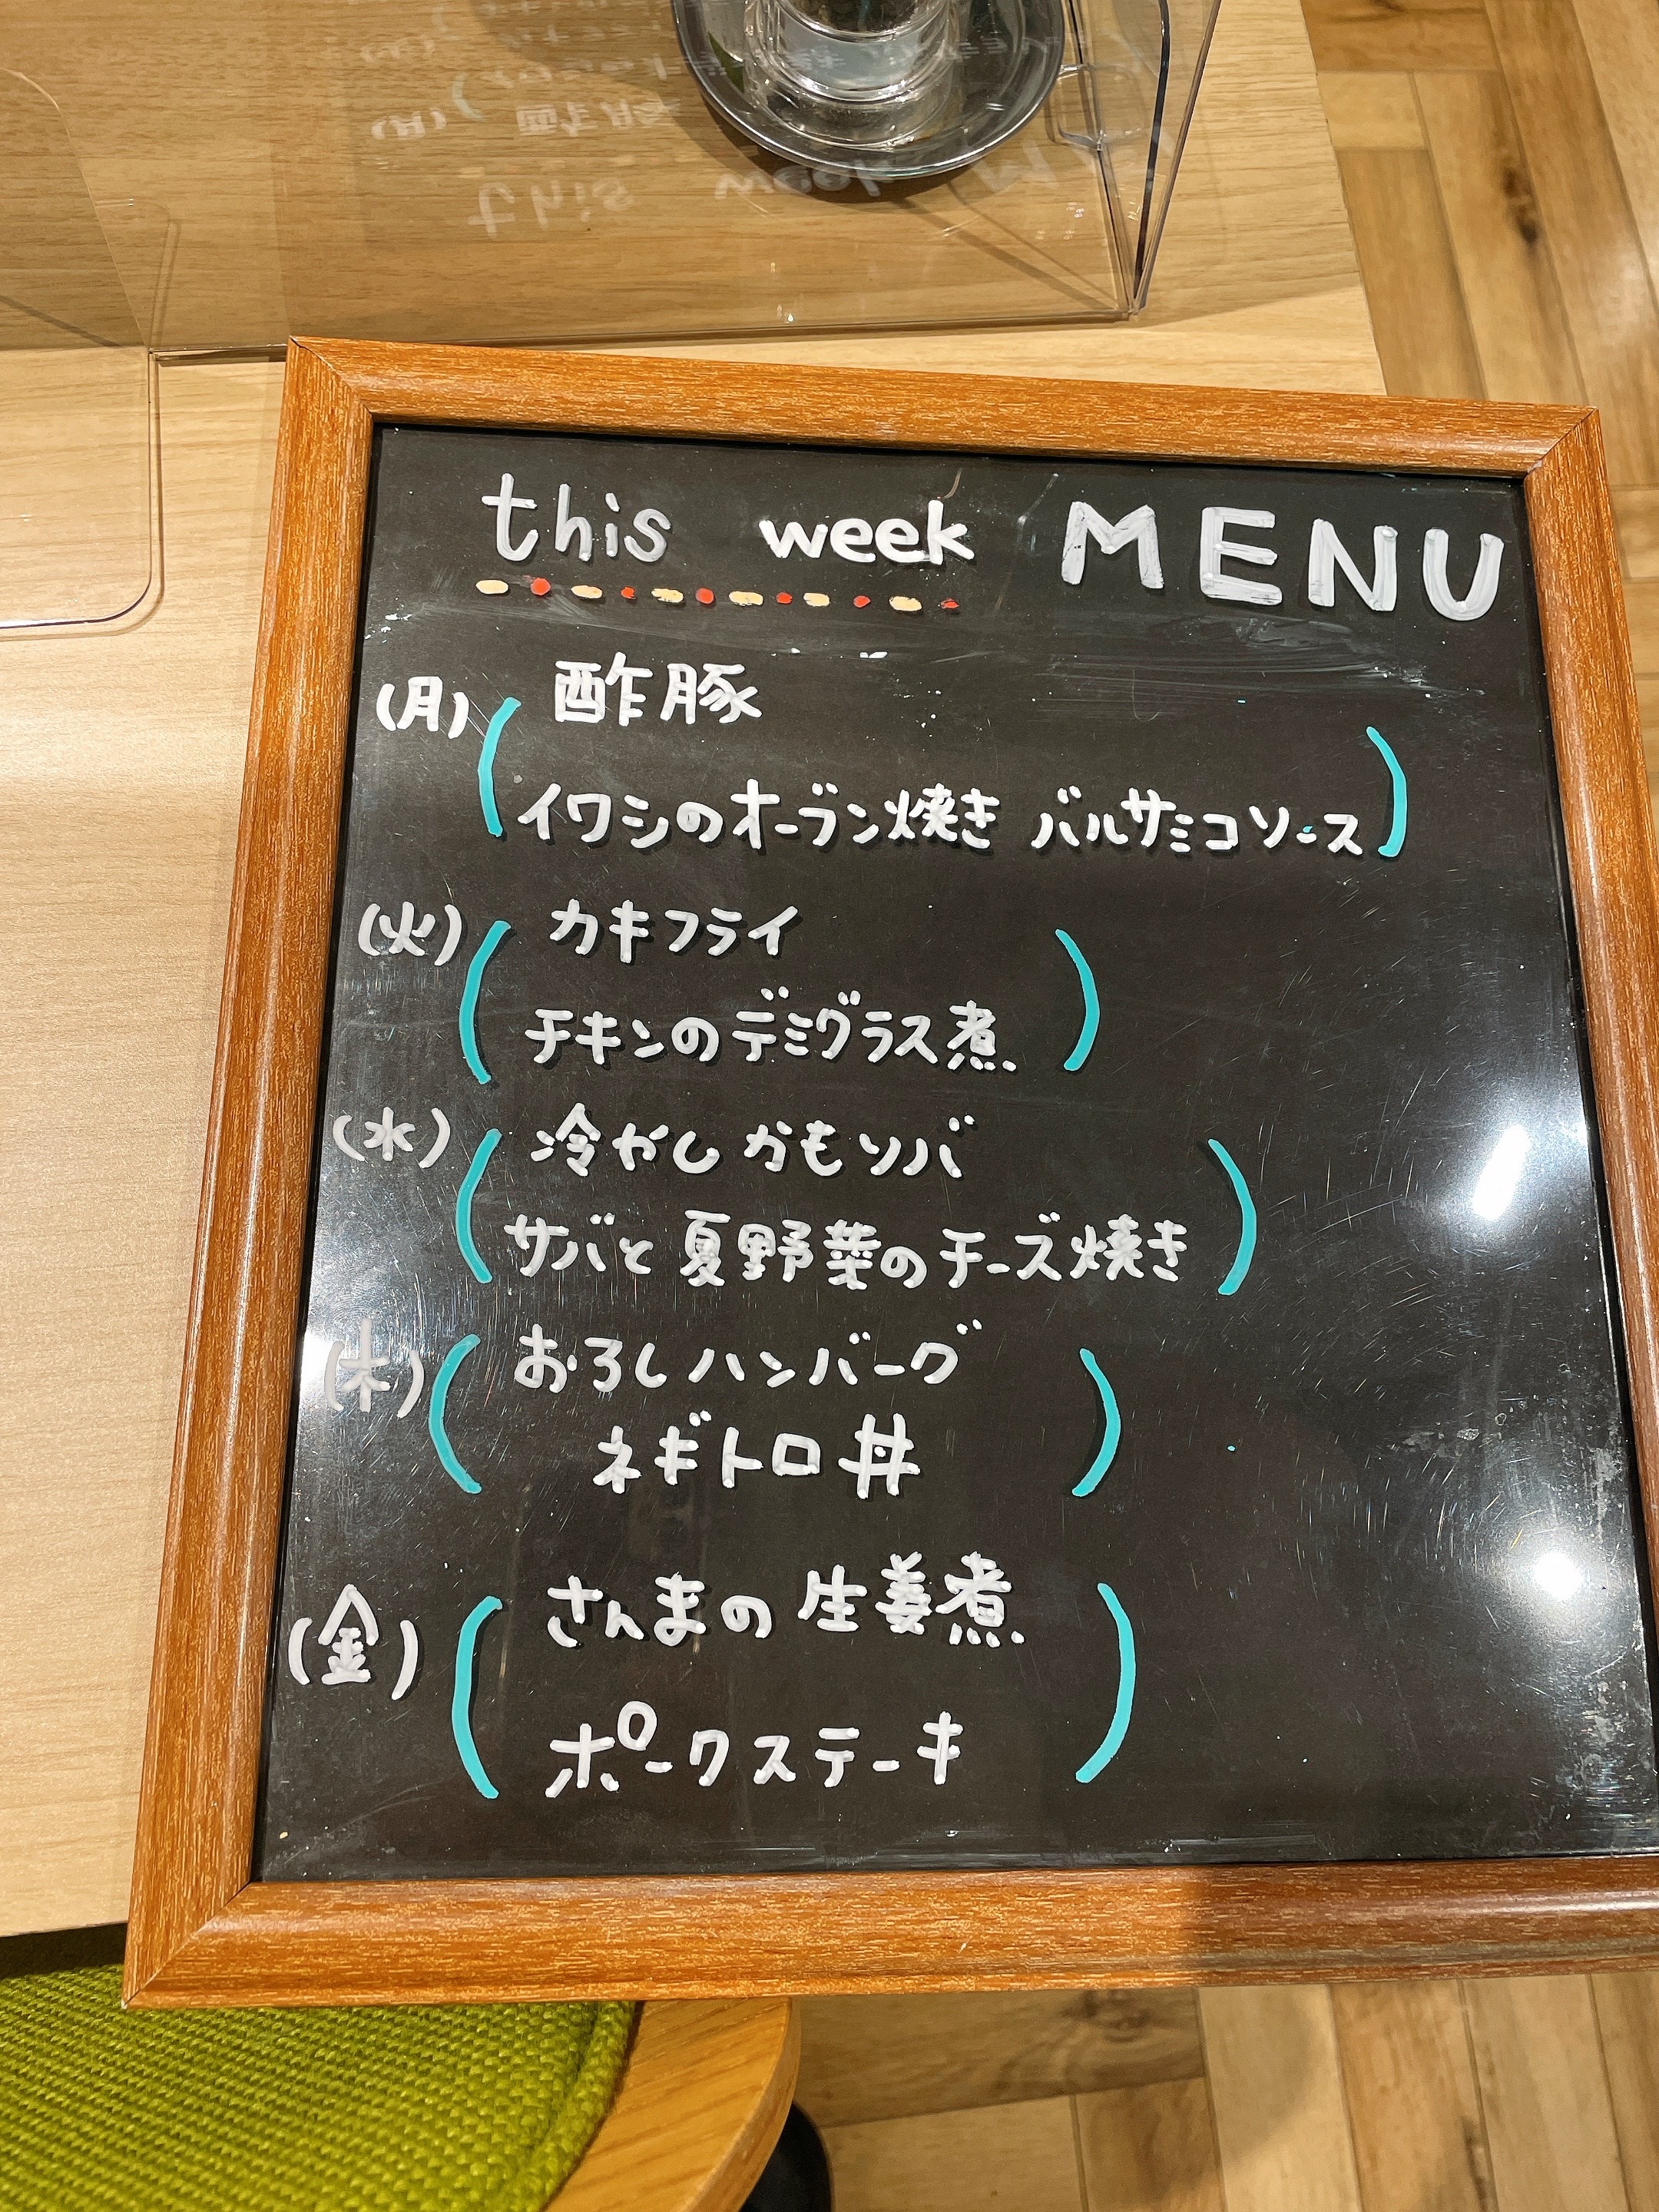 this week MENU
(月) 酢豚
イワシのオーブン焼き バルサミコソース
(火) カキフライ
チキンのデミグラス煮
(水) 冷やしかもソバ
サバと夏野菜のチーズ焼き
(木) おろしハンバーグ
ネギトロ丼
(金) さんまの生姜煮
ポークステーキ